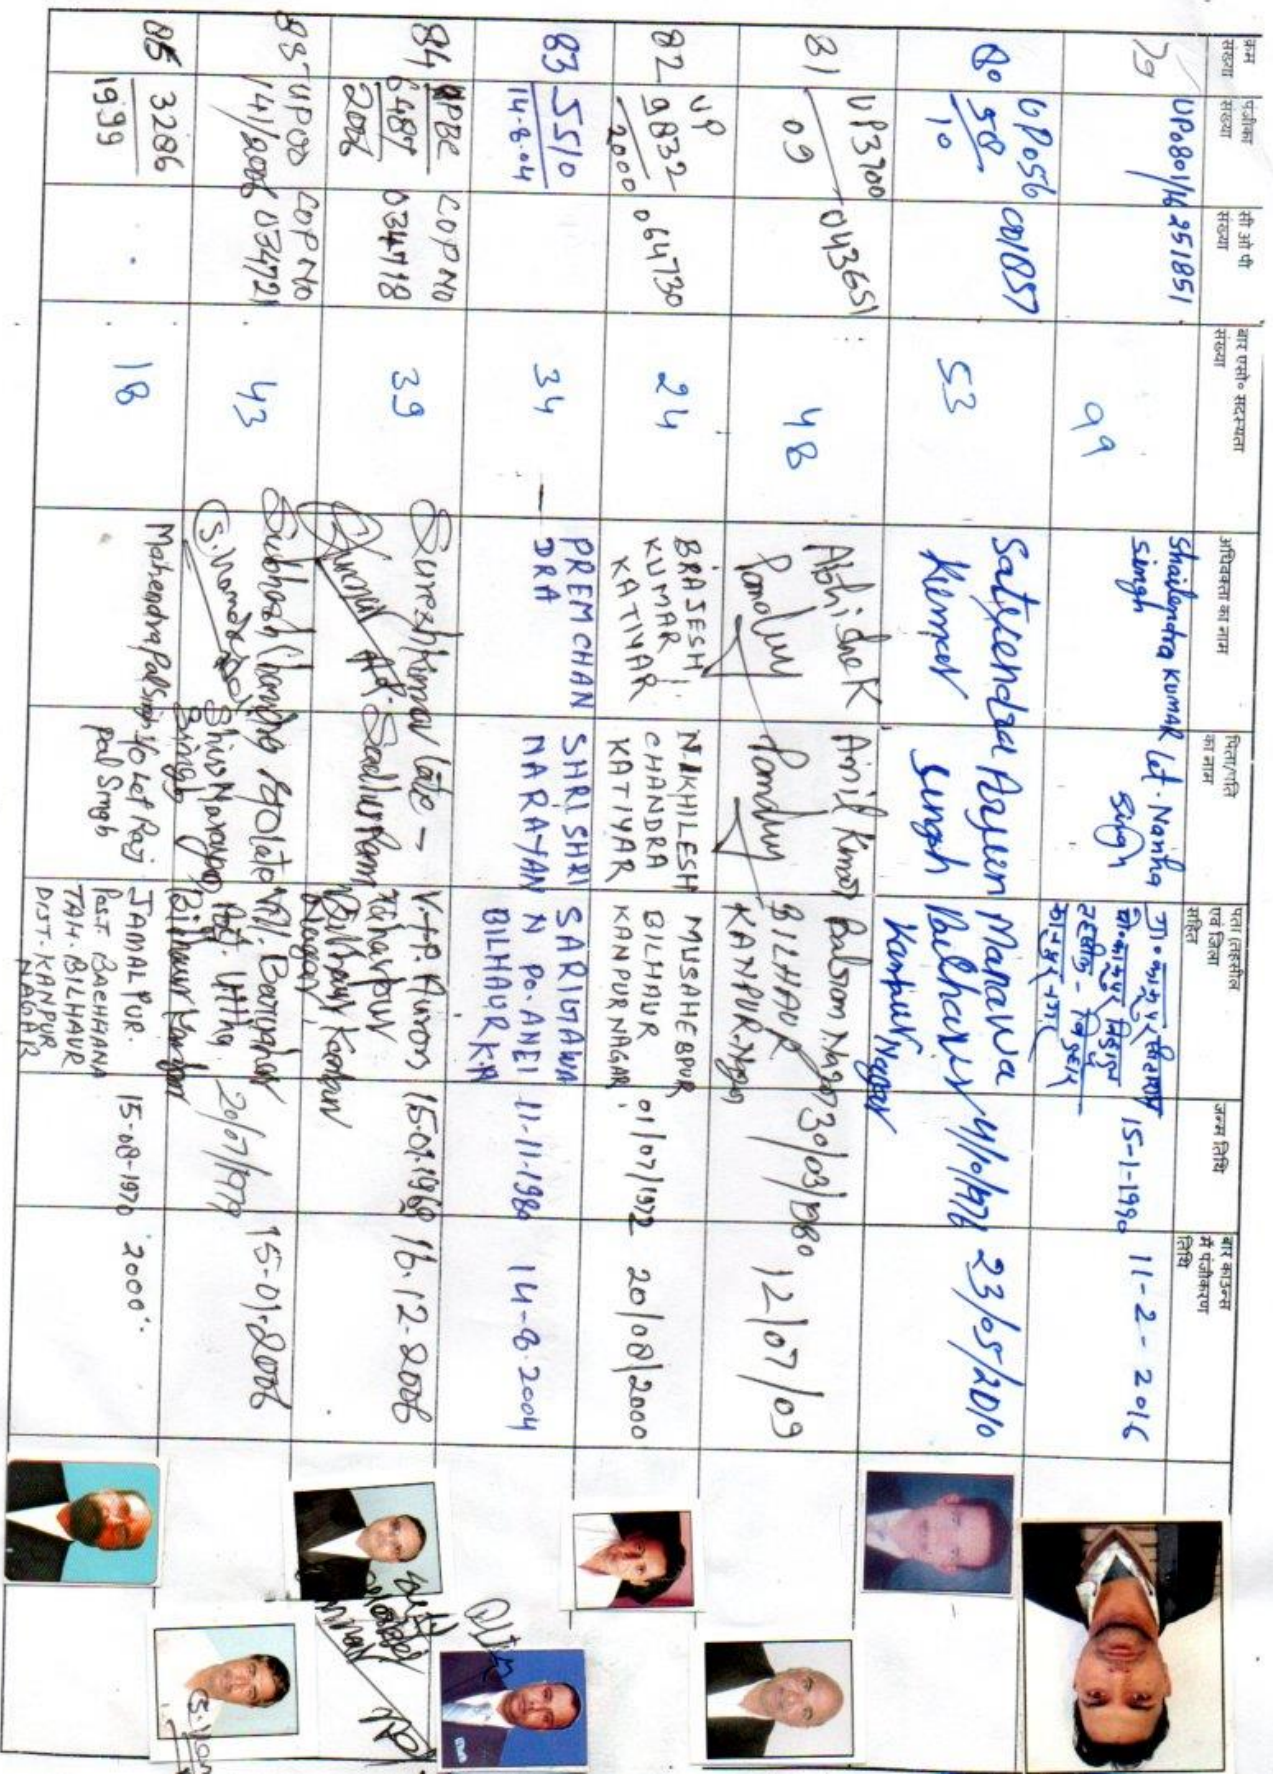 क्रम संख्या
पंजीकरण संख्या
सी ओ पी संख्या
बार एसो० सदस्यता संख्या
अधिवक्ता का नाम
पिता/पति का नाम
पता तहसील एवं जिला सहित
जन्म तिथि
बार काउन्स में पंजीकरण तिथि
79
UP0801/16
251851
99
Shailendra KUMAR Singh
Let. Nanha Singh
15-1-1990
11-2-2016
80
UP056 58/10
001857
53
Satyendra Kumar
Arjun Singh
Manawa Bilhaur Kanpur Nagar
4/10/1976
23/05/2010
81
UP3700/09
043651
48
Abhishek Pandey
Anil Kumar Pandey
Balram Nagar BILHAUR KANPUR Nagar
30/03/1980
12/07/09
82
UP 9832/2000
064730
24
BRAJESH KUMAR KATIYAR
NIKHILESH CHANDRA KATIYAR
MUSAHEBPUR BILHAUR KANPUR NAGAR
01/07/1972
20/08/2000
83
5510
14-8-04
34
PREM CHAN DRA
SHRI SHRI NARAYAN
SARIGAWA N PO. ANEI BILHAUR KN
11-11-1980
14-8-2004
84
UPBC 6487 2006
COP NO 034718
39
Suresh Kumar
Late - Sadhu Ram
V.+P. Auron Bilhaur Kanpur Nagar
15.07.1969
16.12-2006
85
UP00 141/2006
COP NO 034721
43
Subhash Chandra
S/o late Shiv Narayan Singh
Vill. Post. Uttha Bilhaur Kanpur
20/07/1979
15-01-2006
85
3286
1999
18
Mahendra Pal Singh
S/o Let Raj Pal Singh
JAMALPUR. POST. BACHHANA TAH. BILHAUR DIST. KANPUR NAGAR
15-08-1970
2000